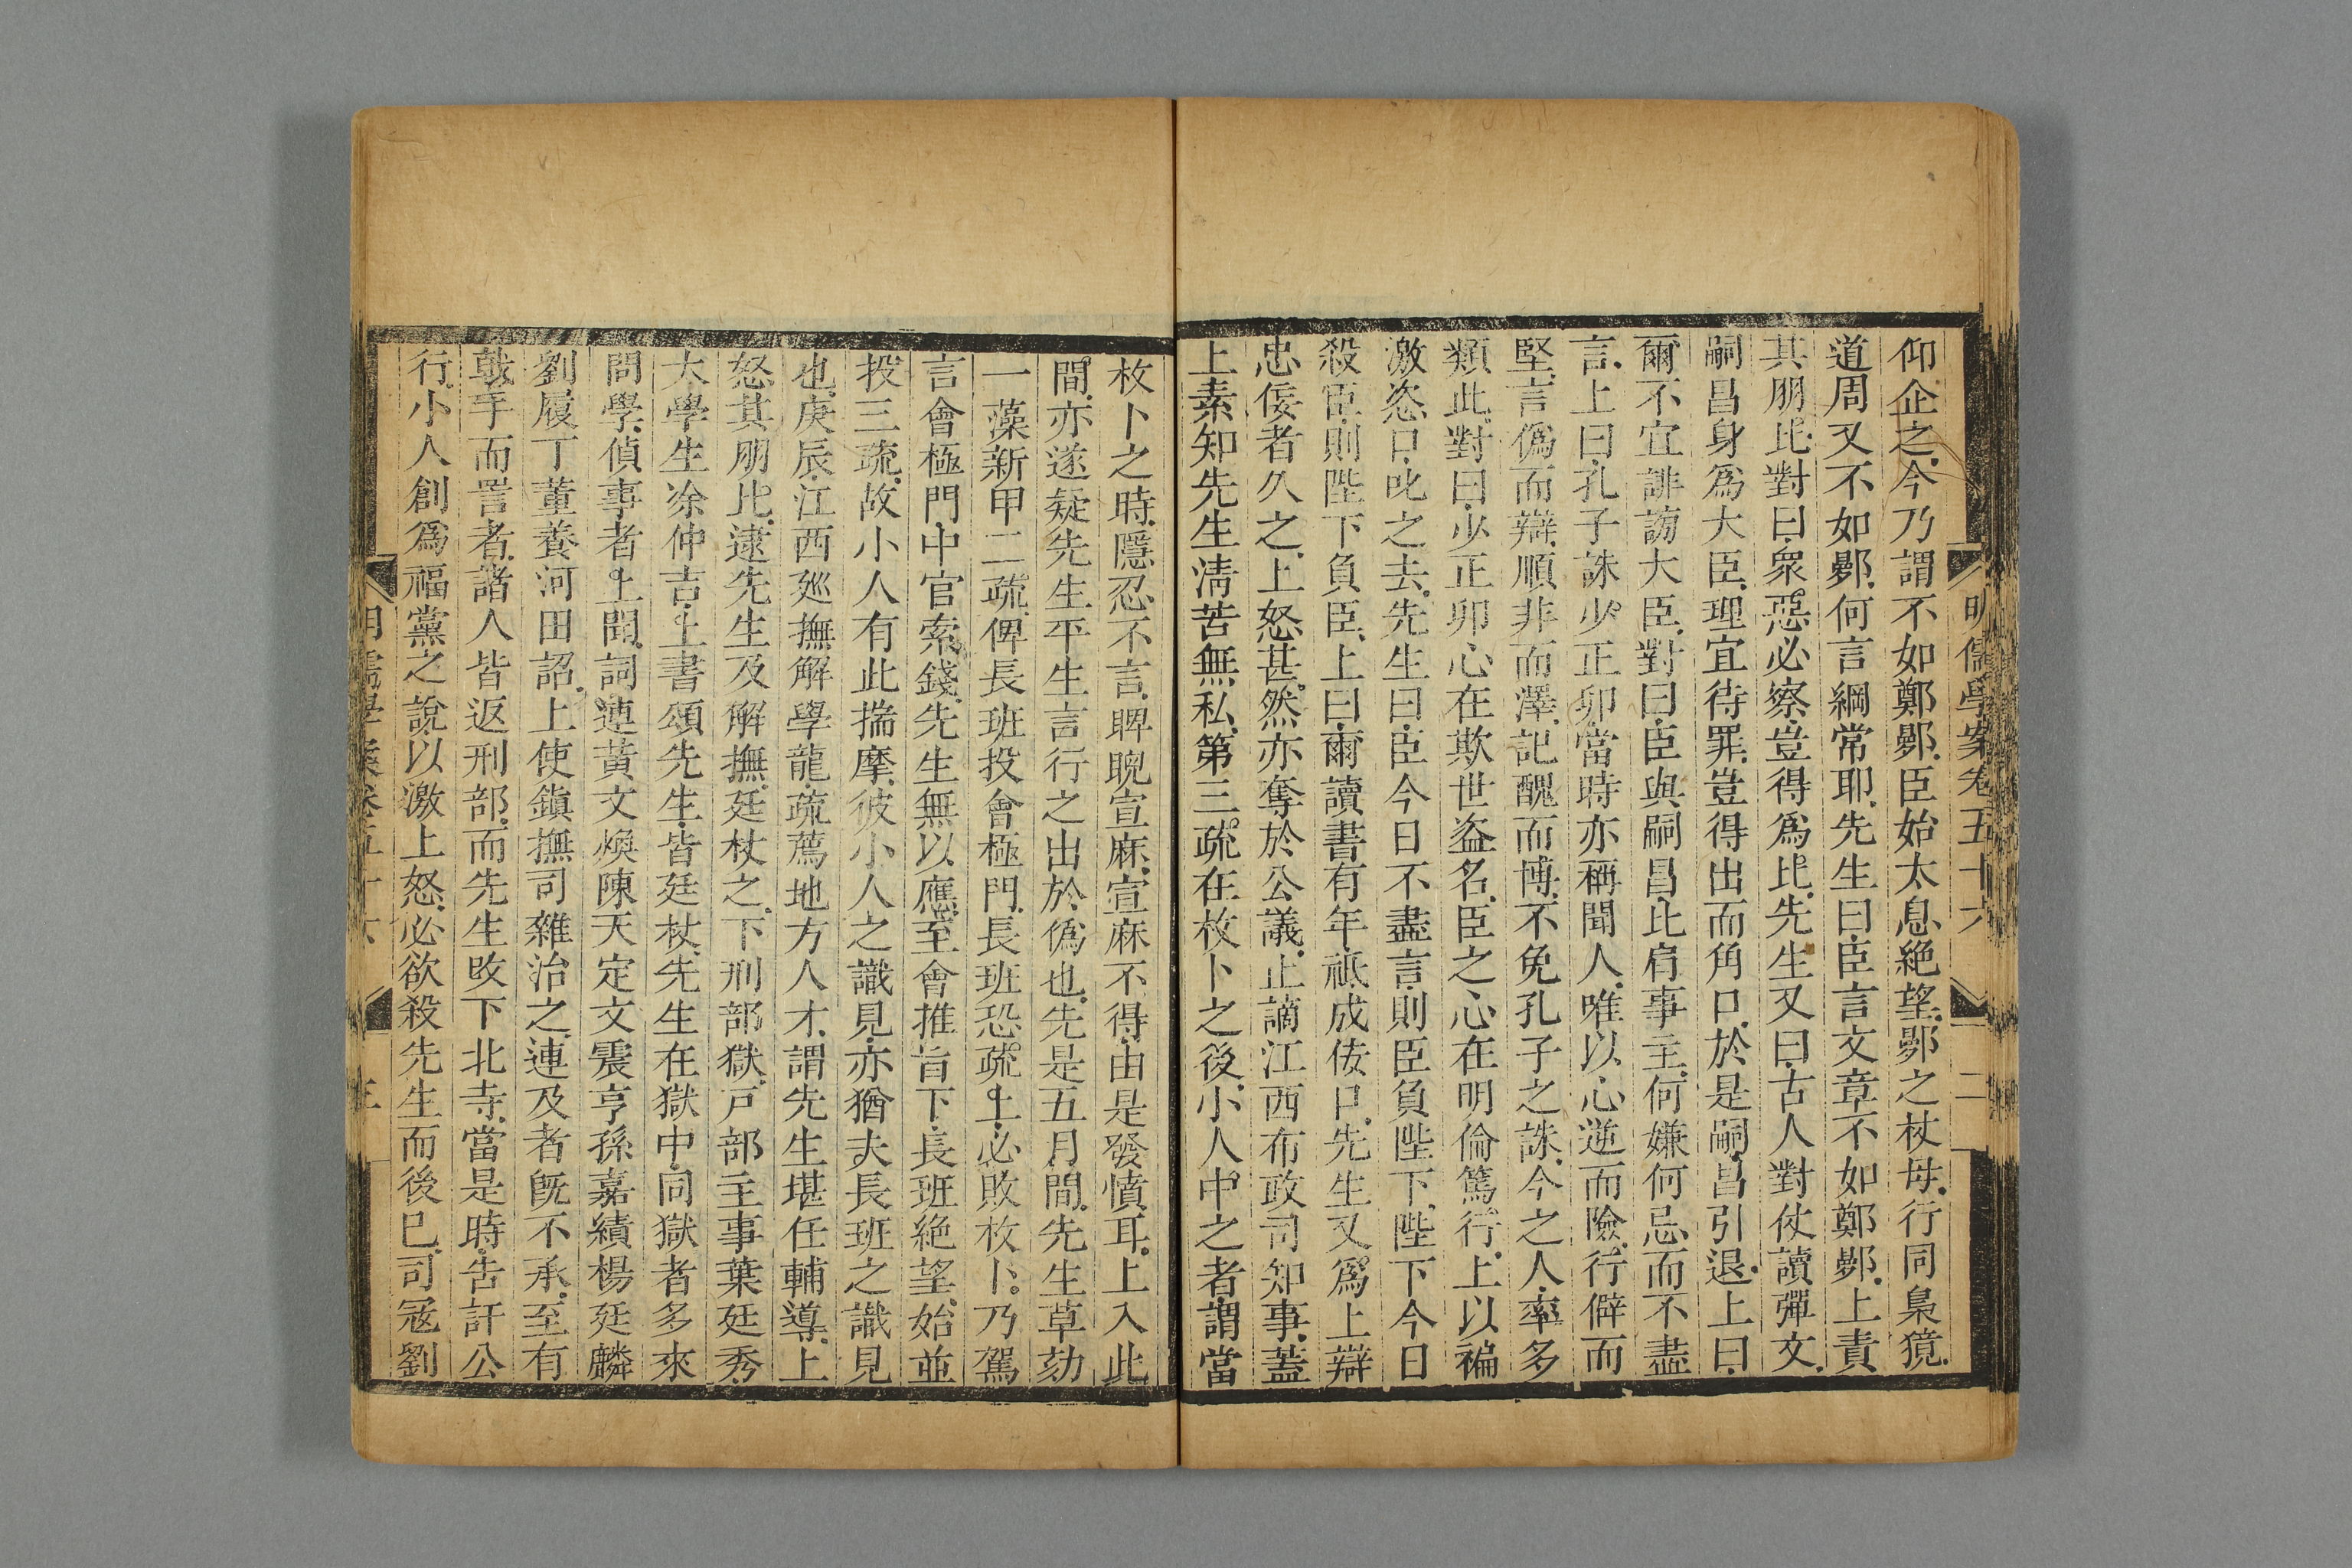 明儒學案卷五十六 二
仰企之今乃謂不如鄭鄤臣始太息絶望鄤之杖母行同梟獍
道周又不如鄤何言綱常耶先生曰臣言文章不如鄭鄤上責
其朋比對曰衆惡必察豈得爲比先生又曰古人對仗讀彈文
嗣昌身爲大臣理宜待罪豈得出而角口於是嗣昌引退上曰
爾不宜誹謗大臣對曰臣與嗣昌比肩事主何嫌何忌而不盡
言上曰孔子誅少正卯當時亦稱聞人唯以心逆而險行僻而
堅言僞而辯順非而澤記醜而博不免孔子之誅今之人率多
類此對曰少正卯心在欺世盗名臣之心在明倫篤行上以褊
激恣口叱之去先生曰臣今日不盡言則臣負陛下陛下今日
殺臣則陛下負臣上曰爾讀書有年祗成佞口先生又爲上辯
忠佞者久之上怒甚然亦奪於公議止謫江西布政司知事蓋
上素知先生淸苦無私第三疏在枚卜之後小人中之者謂當
枚卜之時隱忍不言睥睨宣麻宣麻不得由是發憤耳上入此
間亦遂疑先生平生言行之出於僞也先是五月間先生草劾
一藻新甲二疏俾長班投會極門長班恐疏上必敗枚卜乃駕
言會極門中官索錢先生無以應至會推旨下長班絶望始並
投三疏故小人有此揣摩彼小人之識見亦猶夫長班之識見
也庚辰江西廵撫解學龍疏薦地方人才謂先生堪任輔導上
怒其朋比逮先生及解撫廷杖之下刑部獄戸部主事葉廷秀
太學生涂仲吉上書頌先生皆廷杖先生在獄中同獄者多來
問學偵事者上聞詞連黃文煥陳天定文震亨孫嘉績楊廷麟
劉履丁董養河田詔上使鎭撫司雜治之連及者旣不承至有
戟手而詈者諸人皆返刑部而先生改下北寺當是時告訐公
行小人創爲福黨之說以激上怒必欲殺先生而後已司冦劉
明儒學案卷五十六 三